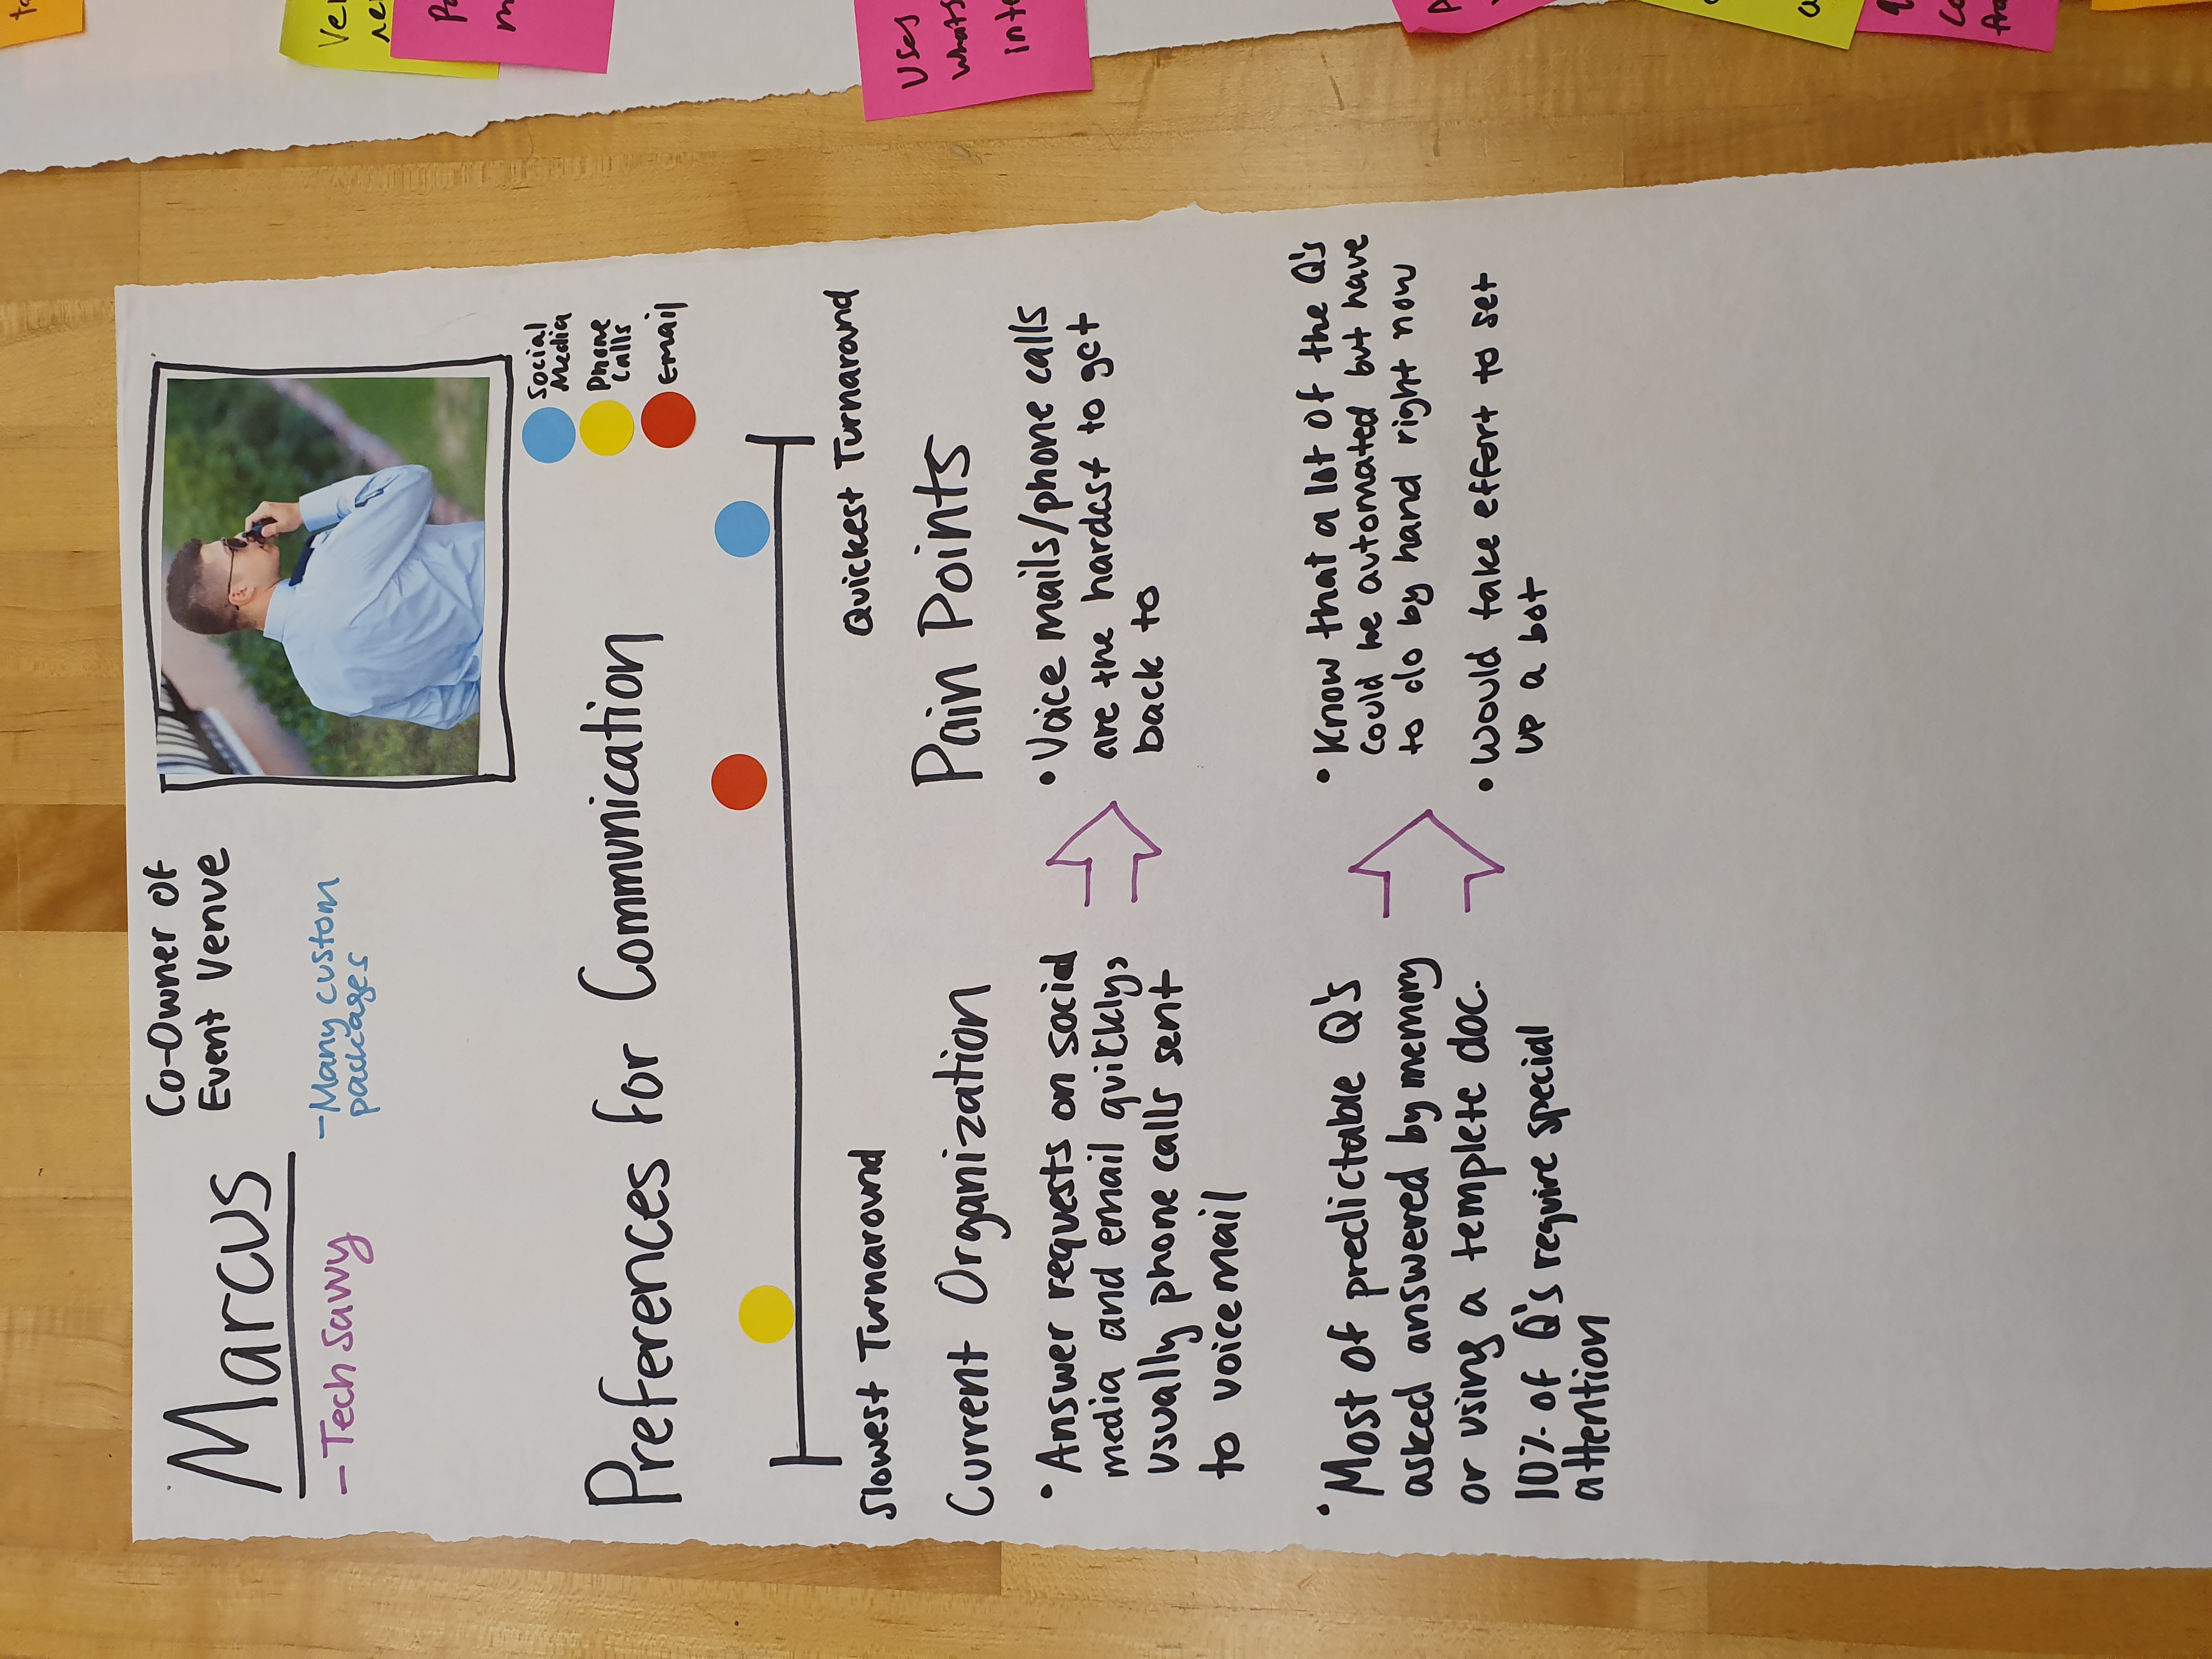 Marcus
Co-Owner of
Event Venue
- Tech Savvy
- Many custom
packages
Social
Media
Phone
Calls
Email
Preferences for Communication
Slowest Turnaround
Quickest Turnaround
Current Organization
• Answer requests on social
media and email quickly,
usually phone calls sent
to voicemail
• Most of predictable Q's
asked answered by memory
or using a templete doc.
10% of Q's require special
attention
Pain Points
• Voice mails/phone calls
are the hardest to get
back to
• Know that a lot of the Q's
could be automated but have
to do by hand right now
• Would take effort to set
up a bot
Uses